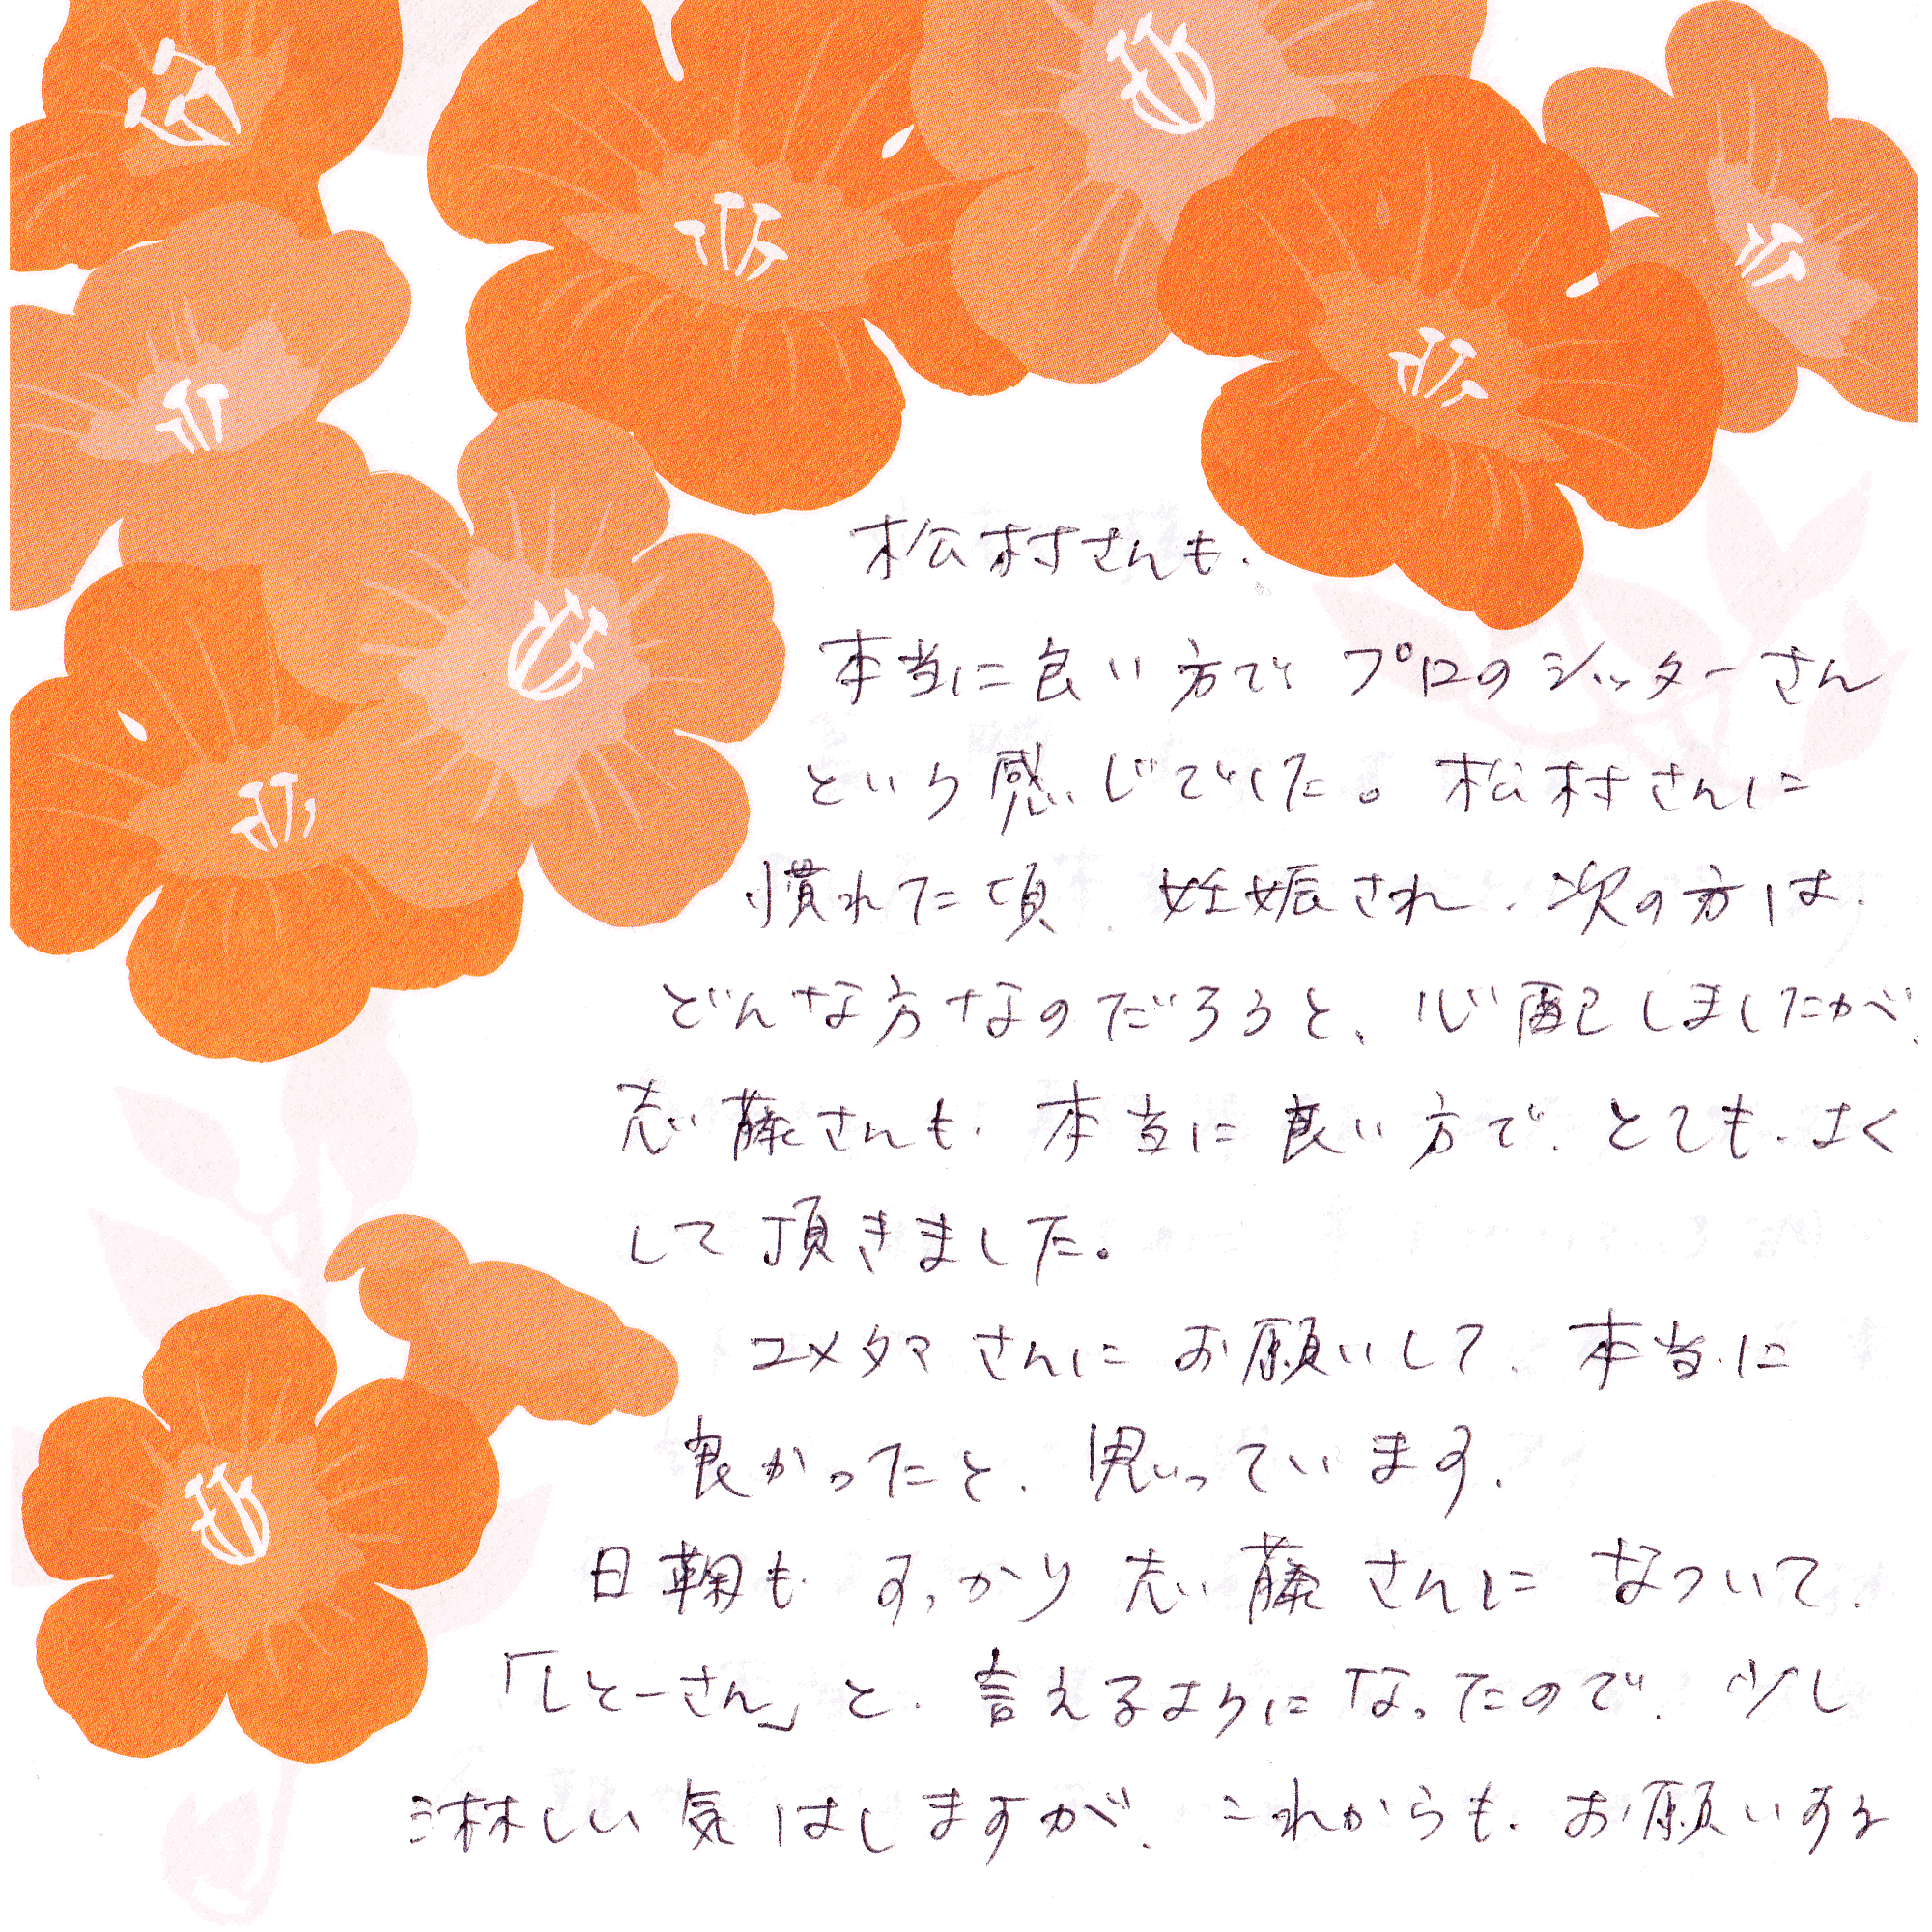 松村さんも、
本当に良い方で プロのシッターさん
という感じでした。松村さんに
慣れた頃、妊娠され、次の方は、
どんな方なのだろうと、心配しましたが、
志藤さんも、本当に良い方で、とても、よく
して頂きました。
ユメタマさんに お願いして、本当に
良かったと、思っています。
日鞠も、すっかり 志藤さんに なついて、
「しとーさん」と、言えるようになったので、少し
淋しい気はしますが、これからも、お願いする